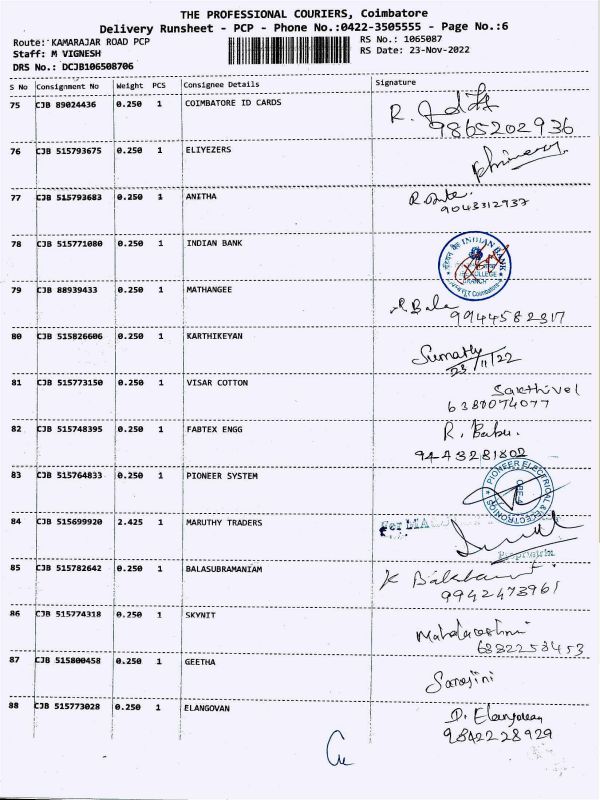 THE PROFESSIONAL COURIERS, Coimbatore
Delivery Runsheet - PCP - Phone No.:0422-3505555 - Page No.:6
Route: KAMARAJAR ROAD PCP
RS No.: 1065087
Staff: M VIGNESH
RS Date: 23-Nov-2022
DRS No.: DCJB106508706
S No Consignment No Weight PCS Consignee Details Signature
75 CJB 89024436 0.250 1 COIMBATORE ID CARDS
9865202936
76 CJB 515793675 0.250 1 ELIYEZERS
77 CJB 515793683 0.250 1 ANITHA
9043312937
78 CJB 515771080 0.250 1 INDIAN BANK
INDIAN BANK
COLLEGE
BRANCH
Coimbatore
79 CJB 88939433 0.250 1 MATHANGEE
Bala
9944582317
80 CJB 515826606 0.250 1 KARTHIKEYAN
Sumathy
23/11/22
81 CJB 515773150 0.250 1 VISAR COTTON
Sakthivel
6380074077
82 CJB 515748395 0.250 1 FABTEX ENGG
R. Babu.
9443281802
83 CJB 515764833 0.250 1 PIONEER SYSTEM
PIONEER ELECTRICAL & ELECTRONICS
84 CJB 515699920 2.425 1 MARUTHY TRADERS
For
Proprietrix
85 CJB 515782642 0.250 1 BALASUBRAMANIAM
K
9942473961
86 CJB 515774318 0.250 1 SKYNIT
6882253453
87 CJB 515800458 0.250 1 GEETHA
Sarojini
88 CJB 515773028 0.250 1 ELANGOVAN
D. Elangovan
9842228929